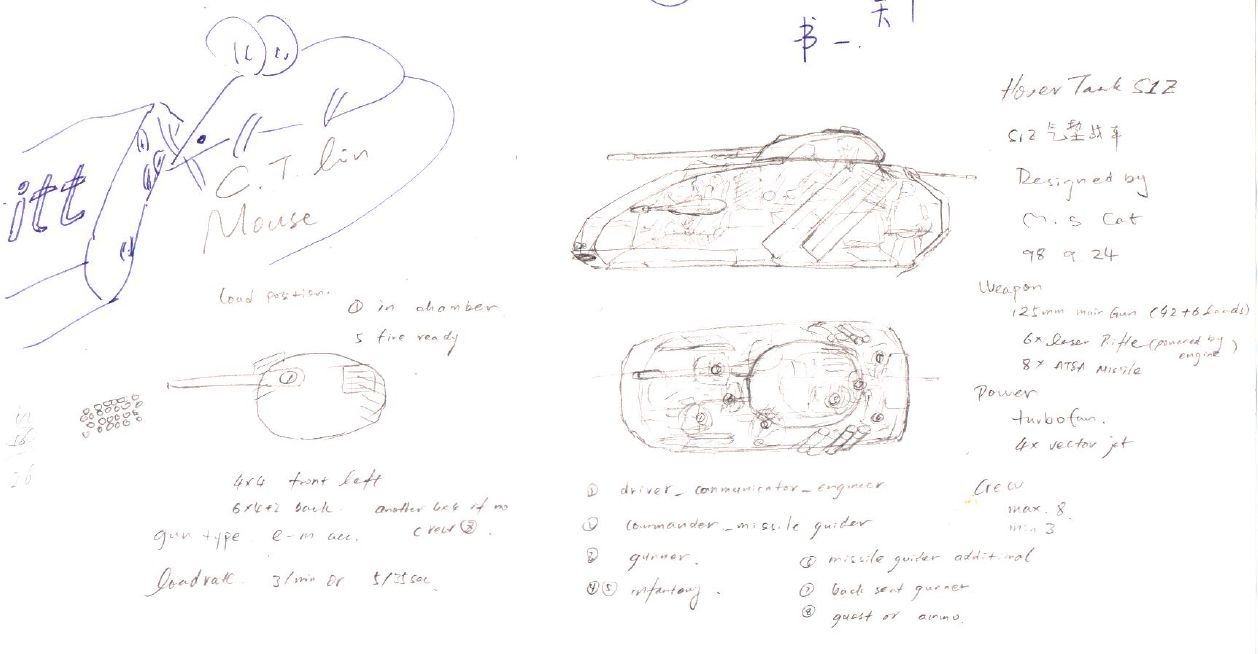 书 -.
itt
C. T. Lin
Mouse
Load position.
① in chamber
5 fire ready
①
4x4 front left
6x4+2 back. another box if no
crew ⑧.
gun type. e-m acc.
loadrate. 3/min or 5/35sec.
Hover Tank S1Z
S1Z 气垫战车
Designed by
M. S Cat
98 9 24
Weapon
125mm main Gun (42+6 Loads)
6x laser Rifle (powered by
engine)
8x ATSA Missile
Power
turbofan.
4x vector jet
Crew
max. 8
min 3
driver_communicator_engineer
① commander_missile guider
gunner.
④⑤ infantory.
⑥ missile guider additional
⑦ back seat gunner
⑧ guest or ammo.